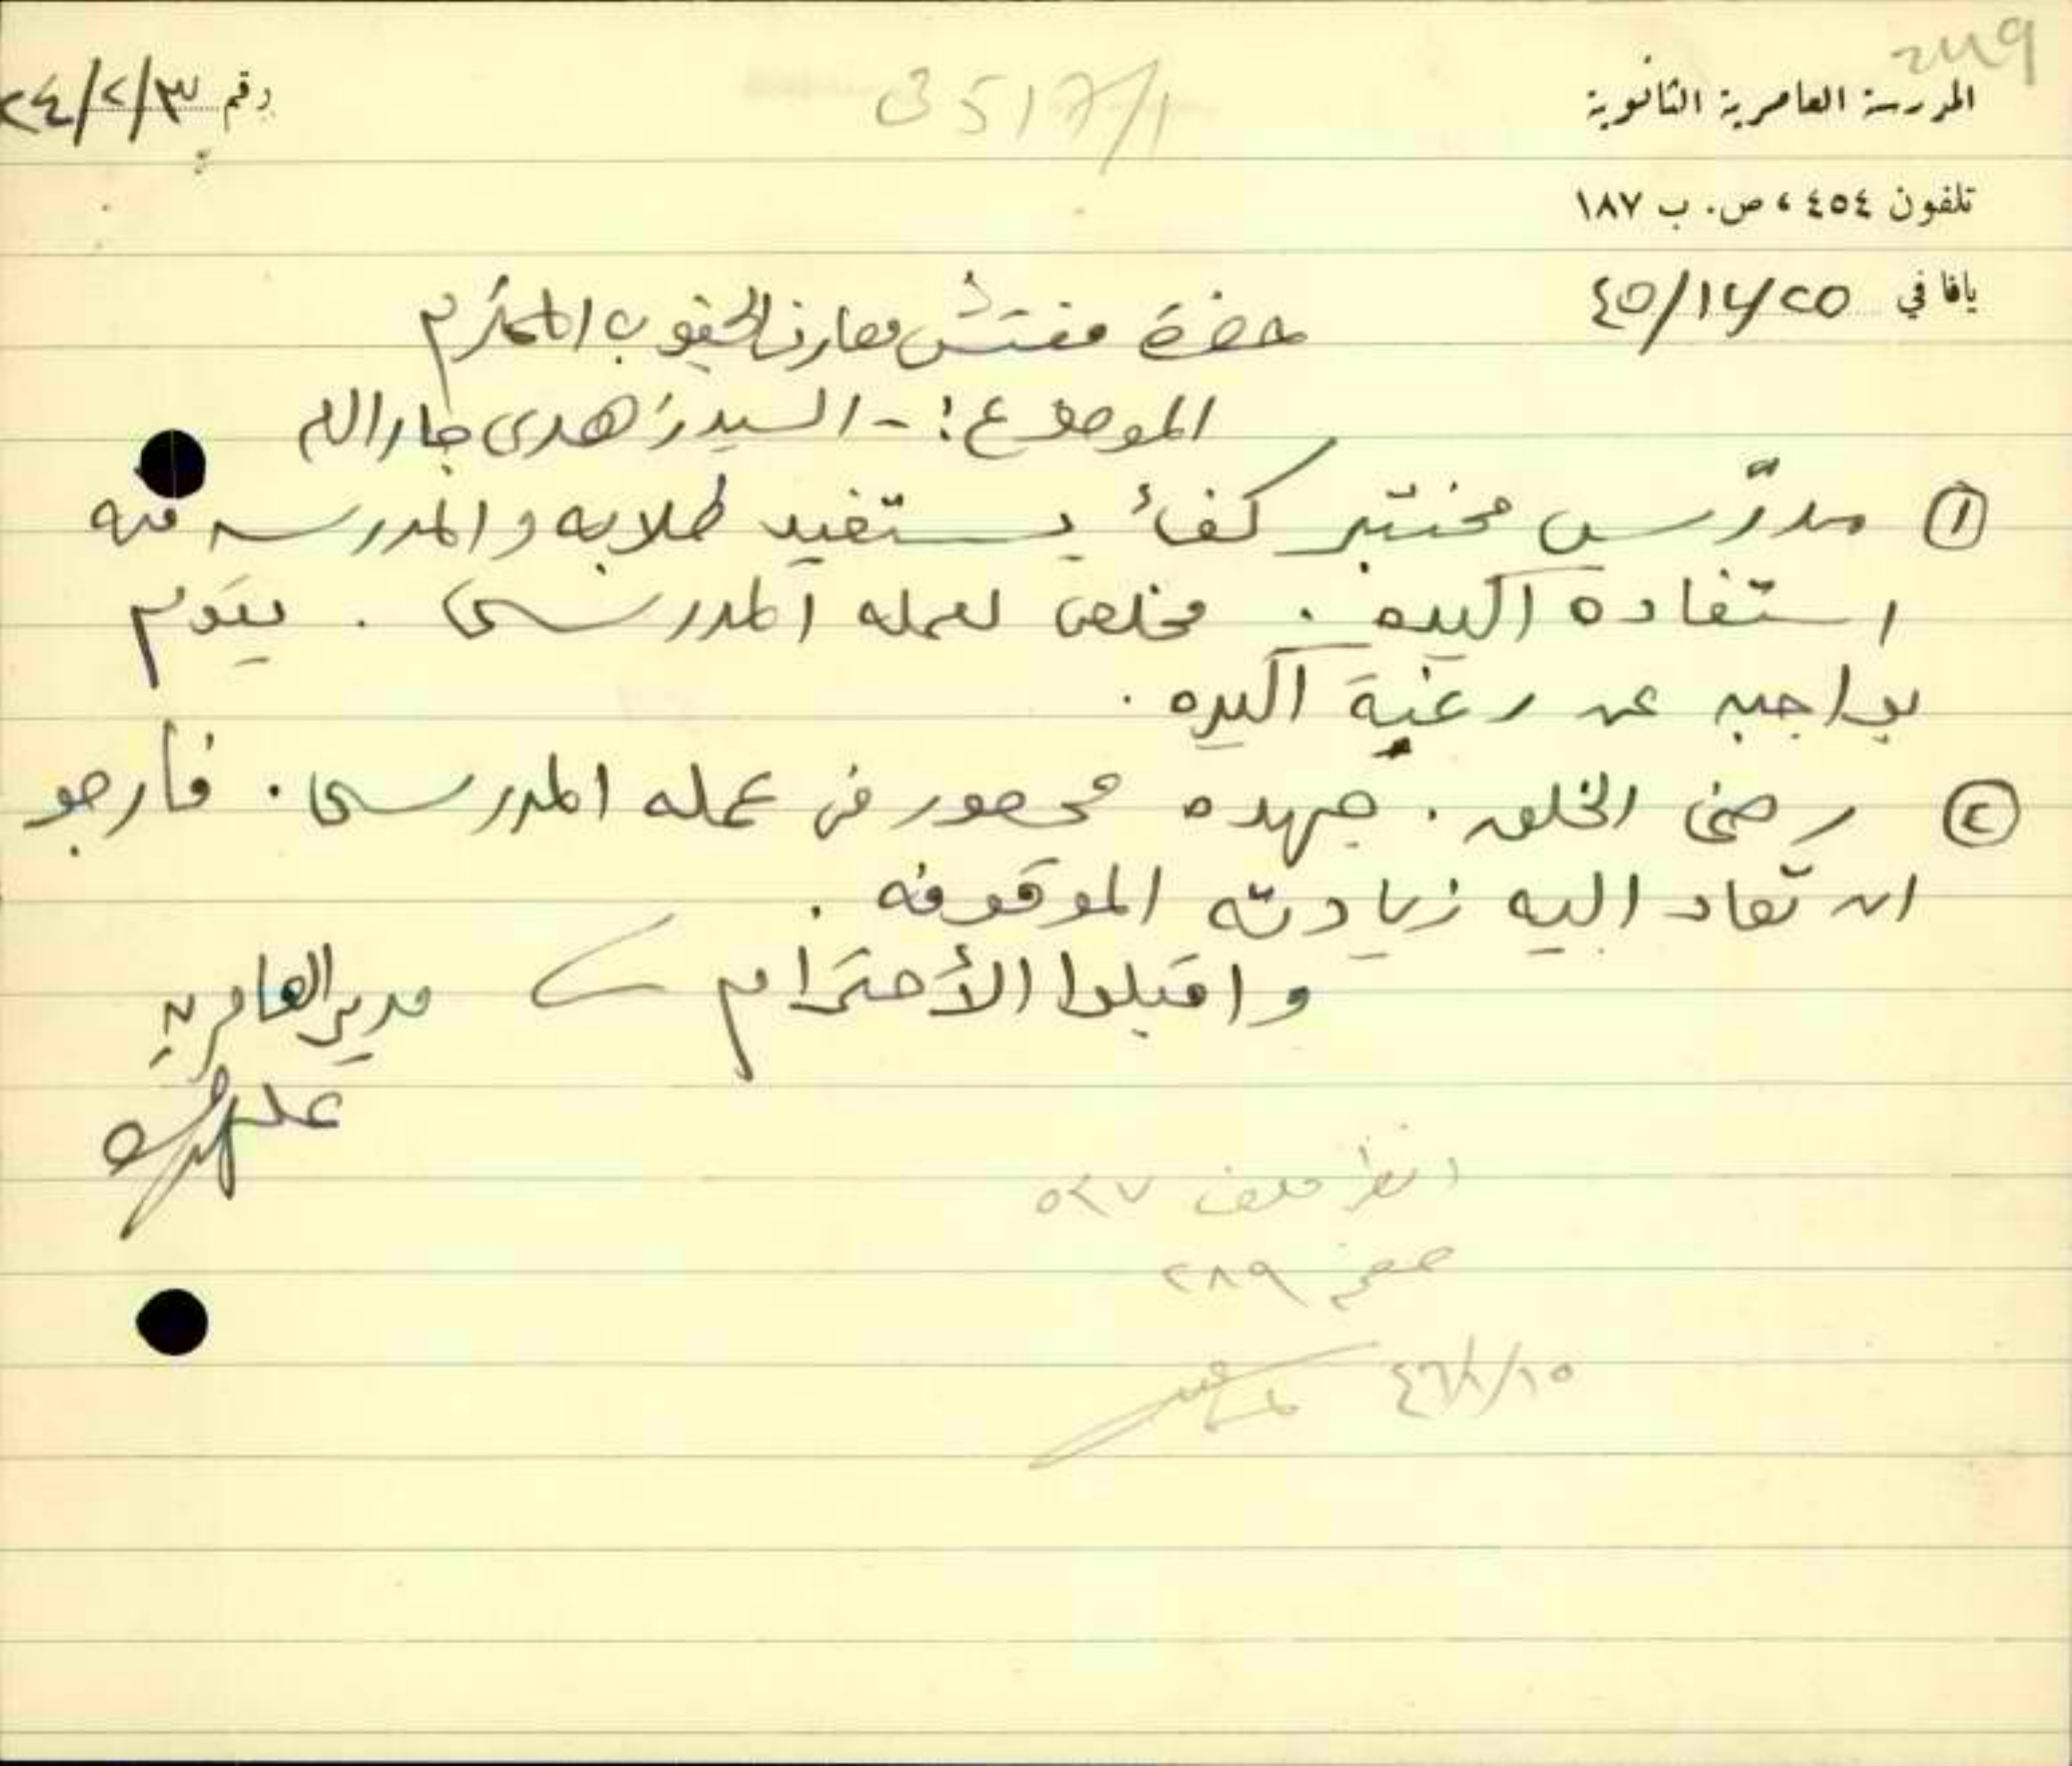 ٢٨٩
المدرسة العامرية الثانوية
رقم ٢٤/٢/٣
3517/1
تلفون ٤٥٤ ، ص. ب ١٨٧
يافا في ٤٥/١٢/٢٥
حضرة مفتش معارف الجنوب المحترم
الموضوع :- السيد زهدي جارالله
① مدرّس مختبر كفأ يستفيد طلابه والمدرسه منه
استفاده اكيده . مخلص لعمله المدرسي . يقوم
بواجبه عن رغبة اكيده .
② رضى الخلق . جهده محصور في عمله المدرسي . فأرجو
ان تعاد اليه زيادته الموقوفه .
واقبلوا الأحترام
مدير العامريه
علي
انظر ملف ٥٢٧
صفحة ٢٨٩